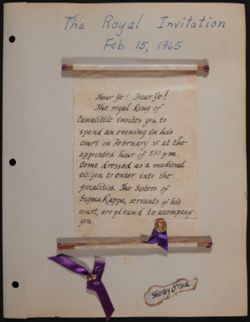 The Royal Invitation
Feb. 15, 1965
Hear Ye! Hear Ye!
The royal king of
Camalittle invites you to
spend an evening in his
court on February 15 at the
appointed hour of 7:30 p.m.
Come dressed as a medieval
citizen to enter into the
formalities. The Sisters of
Sigma Kappa, servants of his
court, are pleased to acompany
you.
Shirley